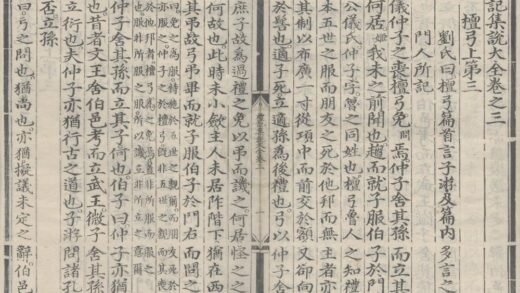 記集說大全卷之三
檀弓上第三
劉氏曰檀弓篇首言子游及篇內多言之
門人所記
儀仲子之喪檀弓免問焉仲子舍其孫而立其
何居姬我未之前聞也趨而就子服伯子於門
公儀氏仲子字魯之同姓也檀弓魯人之知禮
其制以布廣一寸從項中而前交於額又卻向
本五世之服而朋友之死於他邦而無主者亦
於髻也適子死立適孫爲後禮也弓以仲子舍
一
庶子故爲過禮之免以弔而譏之何居怪之之
何故也此時未小斂主人未居阼階下猶在西
其弔故弓弔畢而就子服伯子於門右而問之
曰免之爲服特施於五世之親爾而朋友死於
仲子舍其孫而立其子何也伯子曰仲子亦猶
也昔者文王舍伯邑考而立武王微子舍其孫
立衍也夫仲子亦猶行古之道也子游問諸孔
否立孫
曰弓之問也猶尚也亦猶擬議未定之辭伯邑